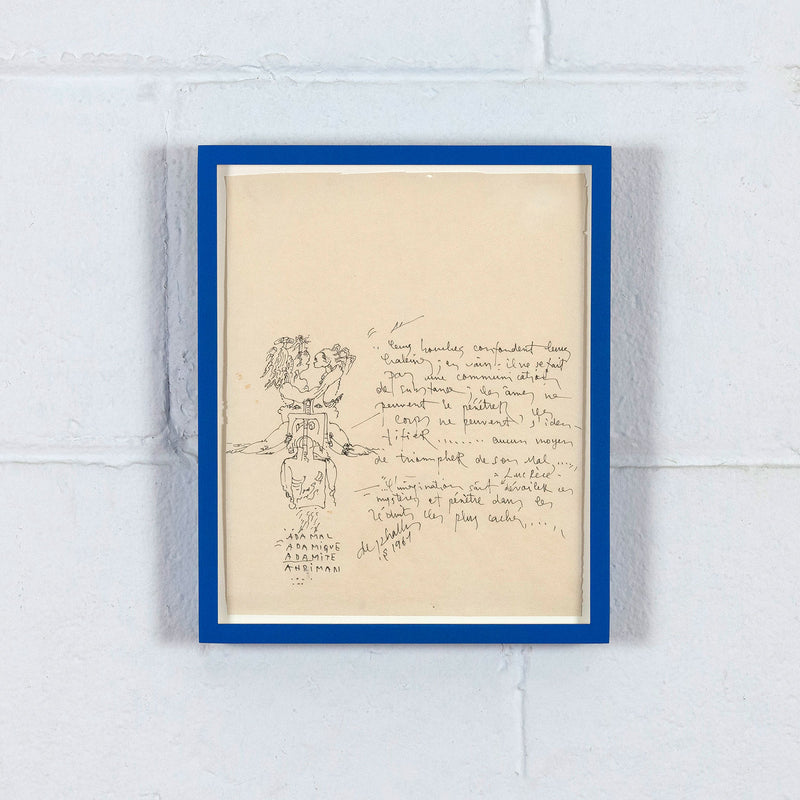 leurs bouches confondent leurs
haleines, en vain: il ne se fait
pas une communication
de substance, les âmes ne
peuvent se pénétrer les
corps ne peuvent s'iden-
tifier ........ aucun moyen
de triompher de son mal,....,
Lucrèce
l'imagination sait dévoiler ces
mystères et pénètre dans les
réduits les plus cachés,....,,
de phallus
1961
ADAMAL
ADAMIQUE
ADAMITE
AHRIMAN